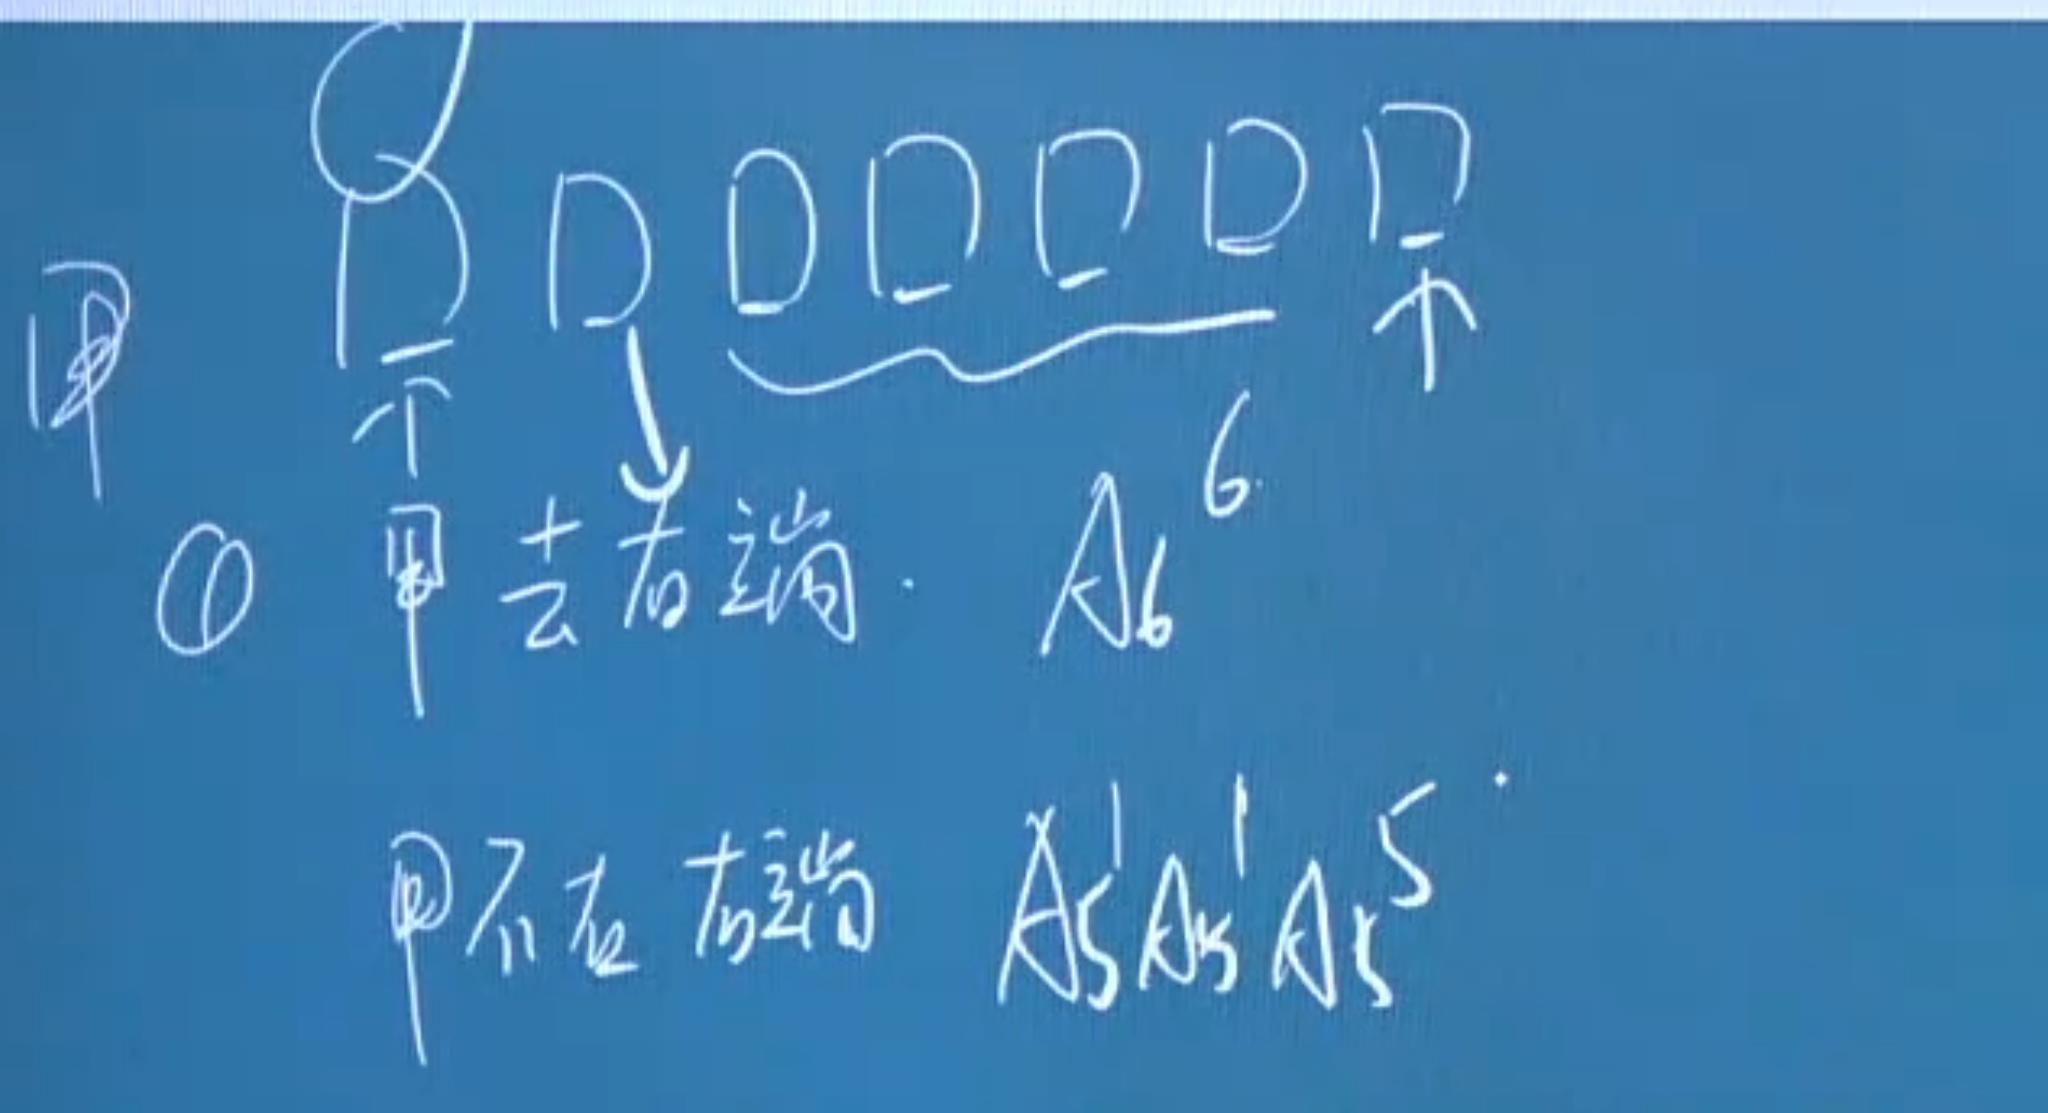 甲
① 甲去右端. A₆⁶
甲不在右端 A₅¹A₅¹A₅⁵